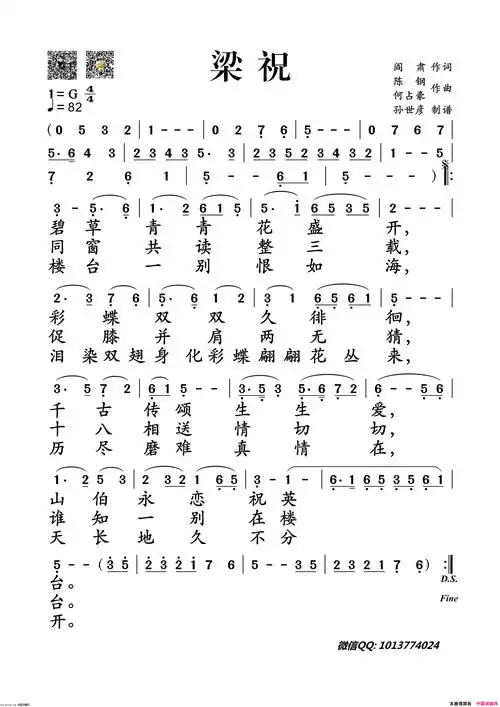 梁祝
阎 肃 作词
陈 钢
何占豪 作曲
孙世彦 制谱
1=G 4/4
♩=82
(0 5 3 2 | 1 - - - | 0 2 7 6 | 5 - - - | 0 7 6 7 |
5· 6 4 3 | 2 3 4 3 5· 3 | 2 3 5 2 3 4 3 2 | 1 - - 5 |
7 2 6 1 | 5 - - 6 1 | 5 - - - ) ‖:
3 - 5· 6 | 1· 2 6 1 5 | 5· 1 6 5 3 5 | 2 - - - |
碧草青青花盛开,
同窗共读整三载,
楼台一别恨如海,
2· 3 7 6 | 5· 6 1 2 | 3 1 6 5 6 1 | 5 - - - |
彩蝶双双久徘徊,
促膝并肩两无猜,
泪染双翅身化彩蝶翩翩花丛来,
3· 5 7 2 | 6 1 5 5 - - | 3· 5 3 5· 6 7 2 | 6 - - 5 6 |
千古传颂生生爱,
十八相送情切切,
历尽磨难真情在,
1· 2 5 3 | 2 3 2 1 6 5 | 3 - 1 - | 6· 1 6 5 3 5 6 1 |
山伯永恋祝英
谁知一别在楼
天长地久不分
5 - - (3 5 | 2 3 2 1 7 6 | 5 - - 3 5 | 2 3 2 1 7 6 ) :‖
台。
台。
开。
D.S.
Fine
微信QQ: 1013774024
本曲谱源自 中国词曲网